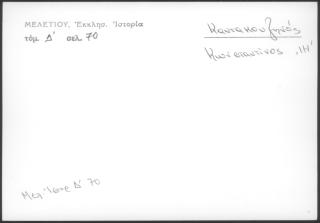 ΜΕΛΕΤΙΟΥ, Ἐκκλησ. Ἱστορία
τόμ. Δ' σελ. 70
Καντακουζηνός
Κωνσταντίνος
Δ' 70